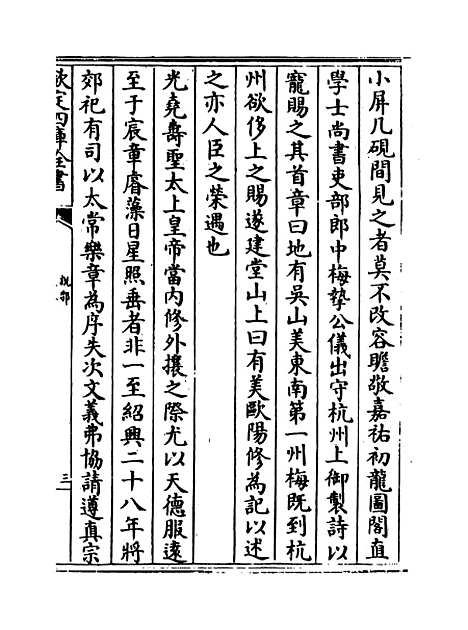 小屏几硯間見之者莫不改容瞻敬嘉祐初龍圖閣直
學士尚書吏部郎中梅摯公儀出守杭州上御製詩以
寵賜之其首章曰地有吳山美東南第一州梅既到杭
州欲侈上之賜遂建堂山上曰有美歐陽修為記以述
之亦人臣之榮遇也
光堯壽聖太上皇帝當内修外攘之際尤以天德服逺
至于宸章睿藻日星照垂者非一至紹興二十八年將
郊祀有司以太常樂章為序失次文義弗協請遵真宗
欽定四庫全書
說郛
三